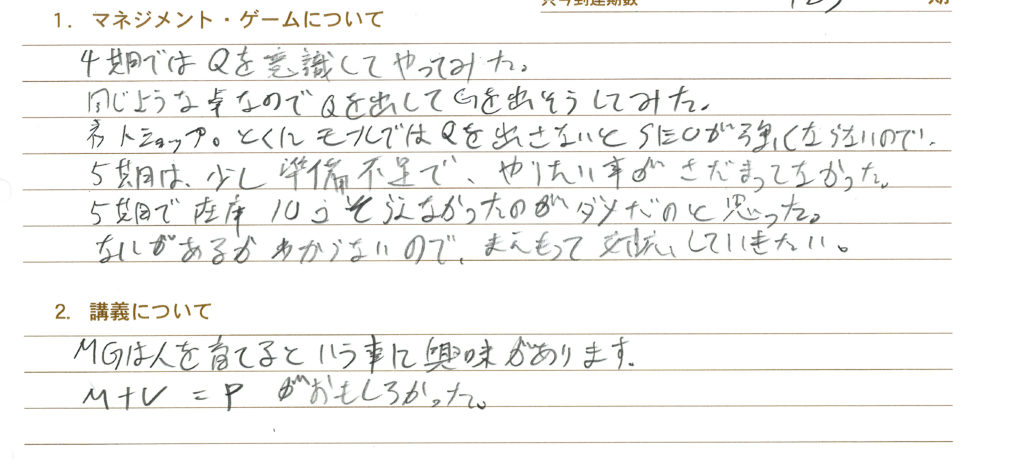 只今到達期数 期
1. マネジメント・ゲームについて
4期ではQを意識してやってみた。
同じような卓なのでQを出してGを出そうしてみた。
ネットショップ。とくにモールではQを出さないとSEOが強くならないので、
5期目は、少し準備不足で、やりたい事がさだまってなかった。
5期目で在庫10コそろえなかったのがダメだのと思った。
なにがあるかわからないので、まえもって対応していきたい。
2. 講義について
MGは人を育てるという事に興味があります。
M+V=P がおもしろかった。